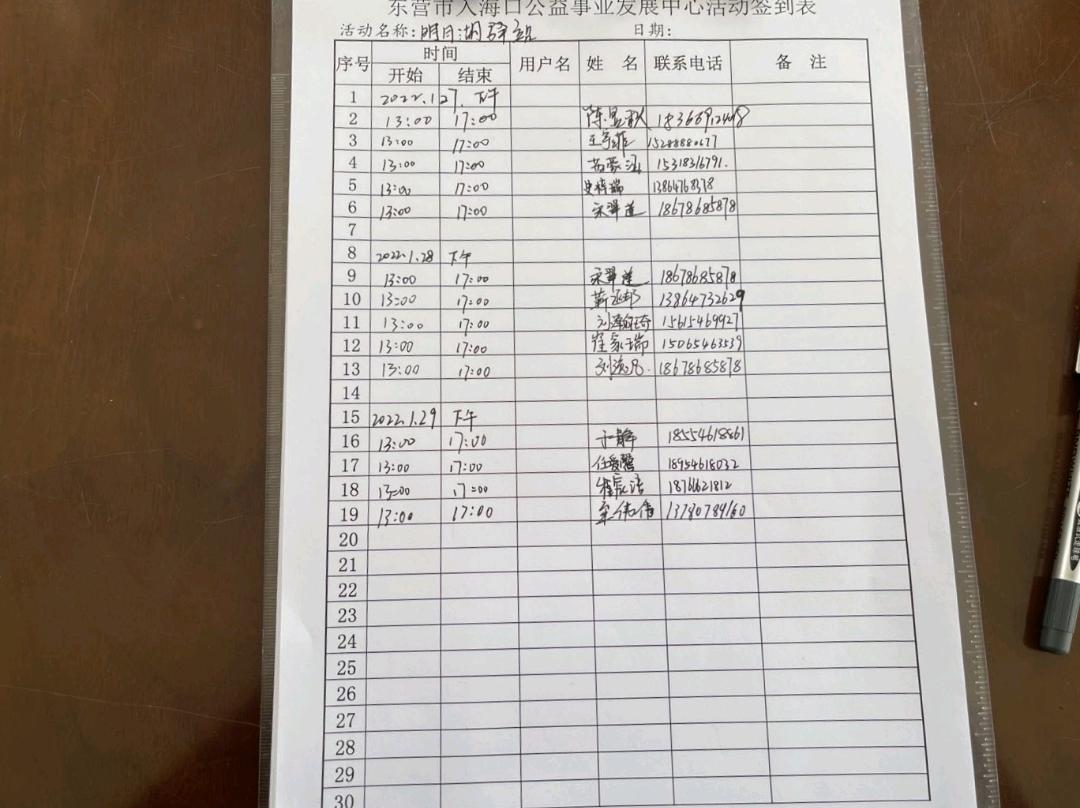 东营市入海口公益事业发展中心活动签到表
活动名称:明月湖驿站 日期:
序号 时间 用户名 姓 名 联系电话 备 注
开始 结束
1 2022.1.27. 下午
2 13:00 17:00
3 13:00 17:00 15288880677
4 13:00 17:00 15318316791.
5 13:00 17:00
6 13:00 17:00 18678685878
7
8 2022.1.28 下午
9 13:00 17:00 18678685878
10 13:00 17:00 13864732629
11 13:00 17:00 15615469927
12 13:00 17:00 崔家瑞 15065463539
13 13:00 17:00 18678685878
14
15 2022.1.29 下午
16 13:00 17:00 于静 18554618861
17 13:00 17:00 任爱馨 18954618032
18 13:00 17:00 18766621812
19 13:00 17:00 13780789160
20
21
22
23
24
25
26
27
28
29
30